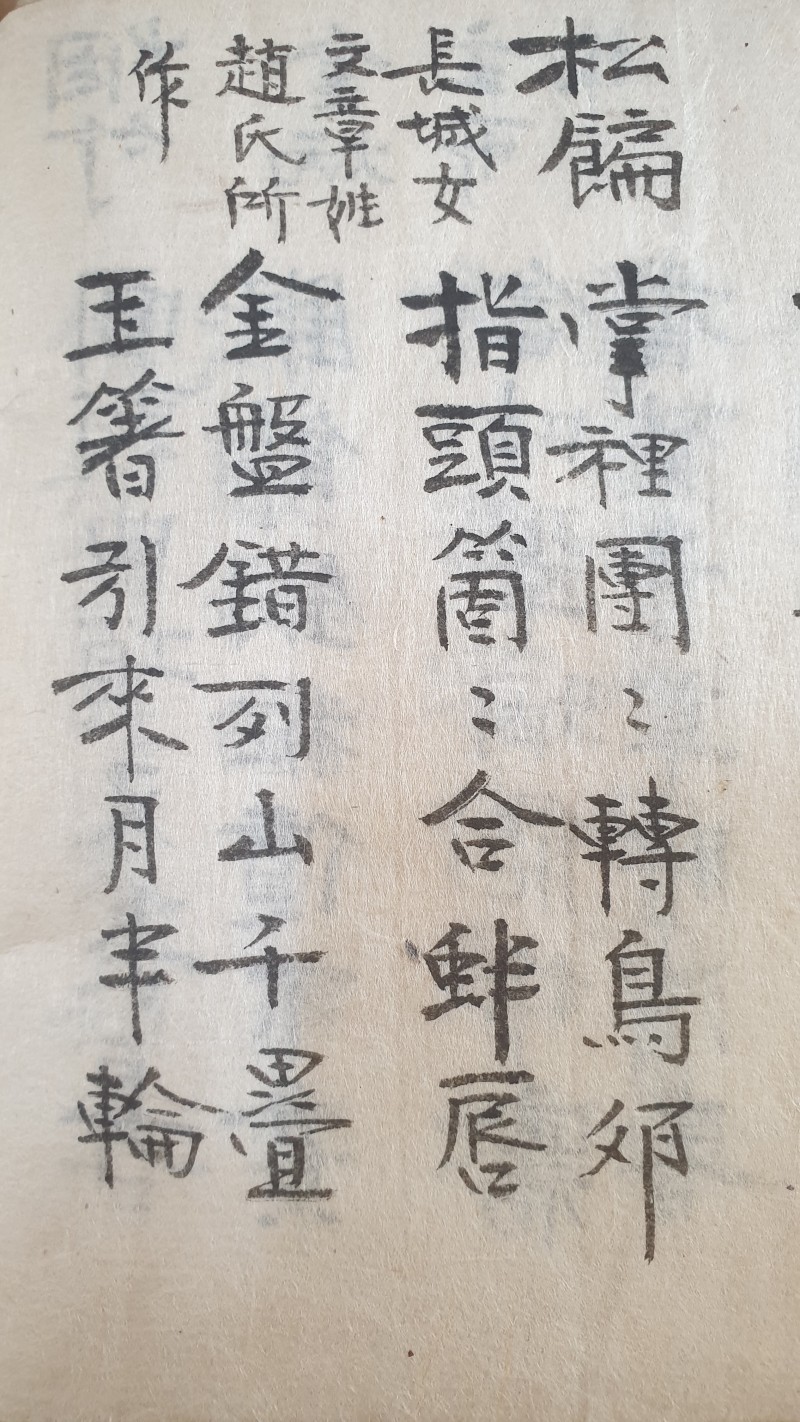 松䭏
長城女
文章姓
趙氏所
作
掌裡團〻轉鳥卵
指頭箇〻合蚌唇
金盤錯列山千疊
玉箸引來月半輪